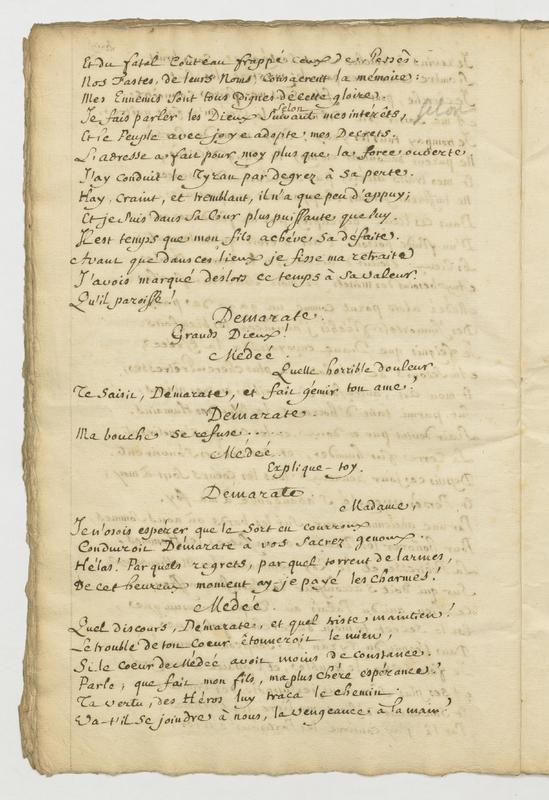 Et du fatal Couteau frappé ceux de Persés.
Nos Fastes, de leurs Noms consacrent la mémoire:
Mes Ennemis sont tous dignes de cette gloire.
selon
Je fais parler les Dieux suivant mes intérêts, selon
Et le Peuple avec joye adopte mes Decrets.
L'adresse a fait pour moy plus que la force ouverte;
J'ay conduit le Tyran par degrez à sa perte.
Hay, craint, et tremblant, il n'a que peu d'appuy;
Et je suis dans sa Cour plus puissante que luy.
Il est temps que mon fils achéve sa défaite.
Avant que dans ces lieux je fisse ma retraite
J'avois marqué deslors ce temps à sa valeur.
Qu'il paroisse!
Démarate.
Grands Dieux!
Médée.
Quelle horrible douleur
Te saisit, Démarate, et fait gémir ton ame?
Démarate.
Ma bouche se refuse....
Médée.
Explique-toy.
Démarate
Madame,
Je n'osois espérer que le Sort en courroux
Conduiroit Démarate à vos sacrez genoux.
Hélas! Par quels regrets, par quel torrent de larmes,
De cet heureux moment ay-je payé les charmes!
Médée.
Quel discours, Démarate, et quel triste maintien!
Le trouble de ton Coeur étonneroit le mien,
Si le coeur de Médée avoit moins de constance.
Parle; que fait mon fils, ma plus chére espérance?
Ta vertu, des Héros luy traça le chemin.
Va-t'il se joindre à nous, la vengeance à la main?